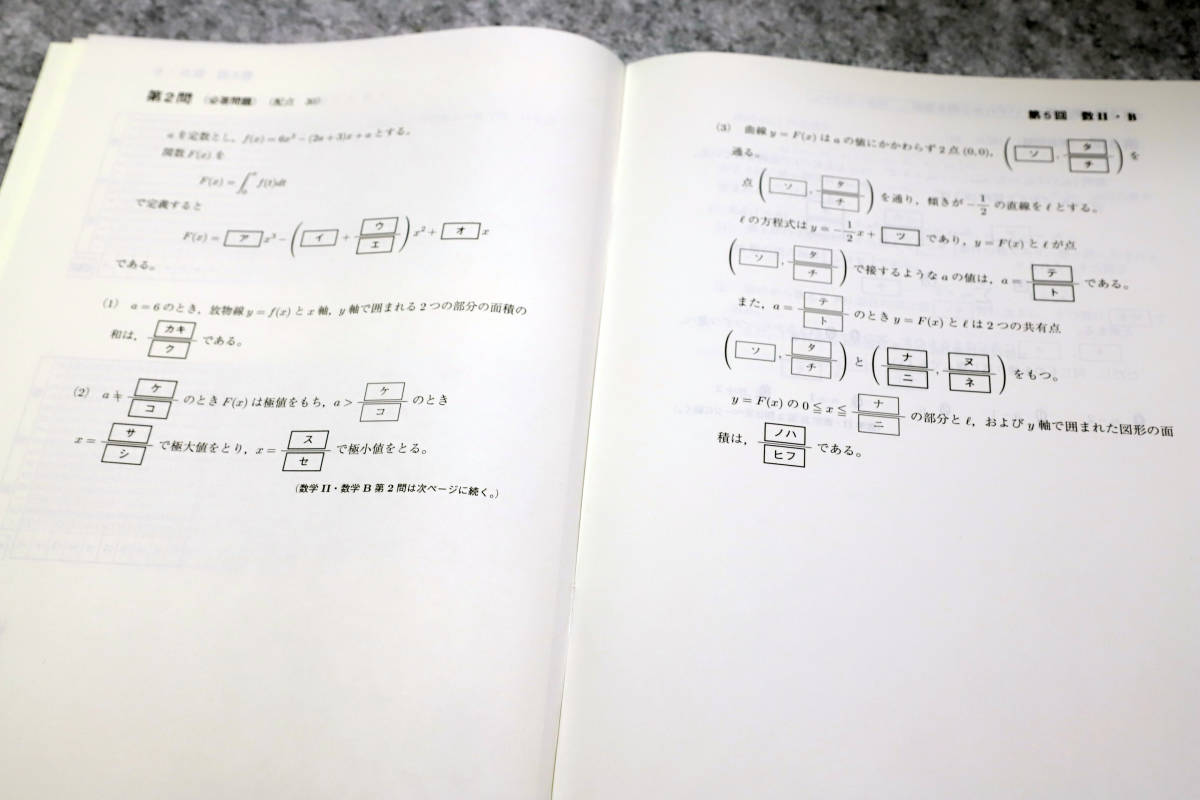 第2問 (必答問題) (配点 30)
aを定数とし, f(x)=6x²-(2a+3)x+aとする。
関数F(x)を
F(x)=∫₀ˣ f(t)dt
で定義すると
F(x)= ア x³-( イ + ウ/エ )x²+ オ x
である。
(1) a=6のとき, 放物線y=f(x)とx軸, y軸で囲まれる2つの部分の面積の
和は, カキ/ク である。
(2) a≠ ケ/コ のときF(x)は極値をもち, a> ケ/コ のとき
x= サ/シ で極大値をとり, x= ス/セ で極小値をとる。
(数学II・数学B第2問は次ページに続く。)
第5回 数II・B
(3) 曲線y=F(x)はaの値にかかわらず2点(0,0), ( ソ , タ/チ )を
通る。
点( ソ , タ/チ )を通り, 傾きが-1/2の直線をℓとする。
ℓの方程式はy=-1/2x+ ツ であり, y=F(x)とℓが点
( ソ , タ/チ )で接するようなaの値は, a= テ/ト である。
また, a= テ/ト のときy=F(x)とℓは2つの共有点
( ソ , タ/チ )と( ナ/ニ , ヌ/ネ )をもつ。
y=F(x)の0≦x≦ ナ/ニ の部分とℓ, およびy軸で囲まれた図形の面
積は, ノハ/ヒフ である。